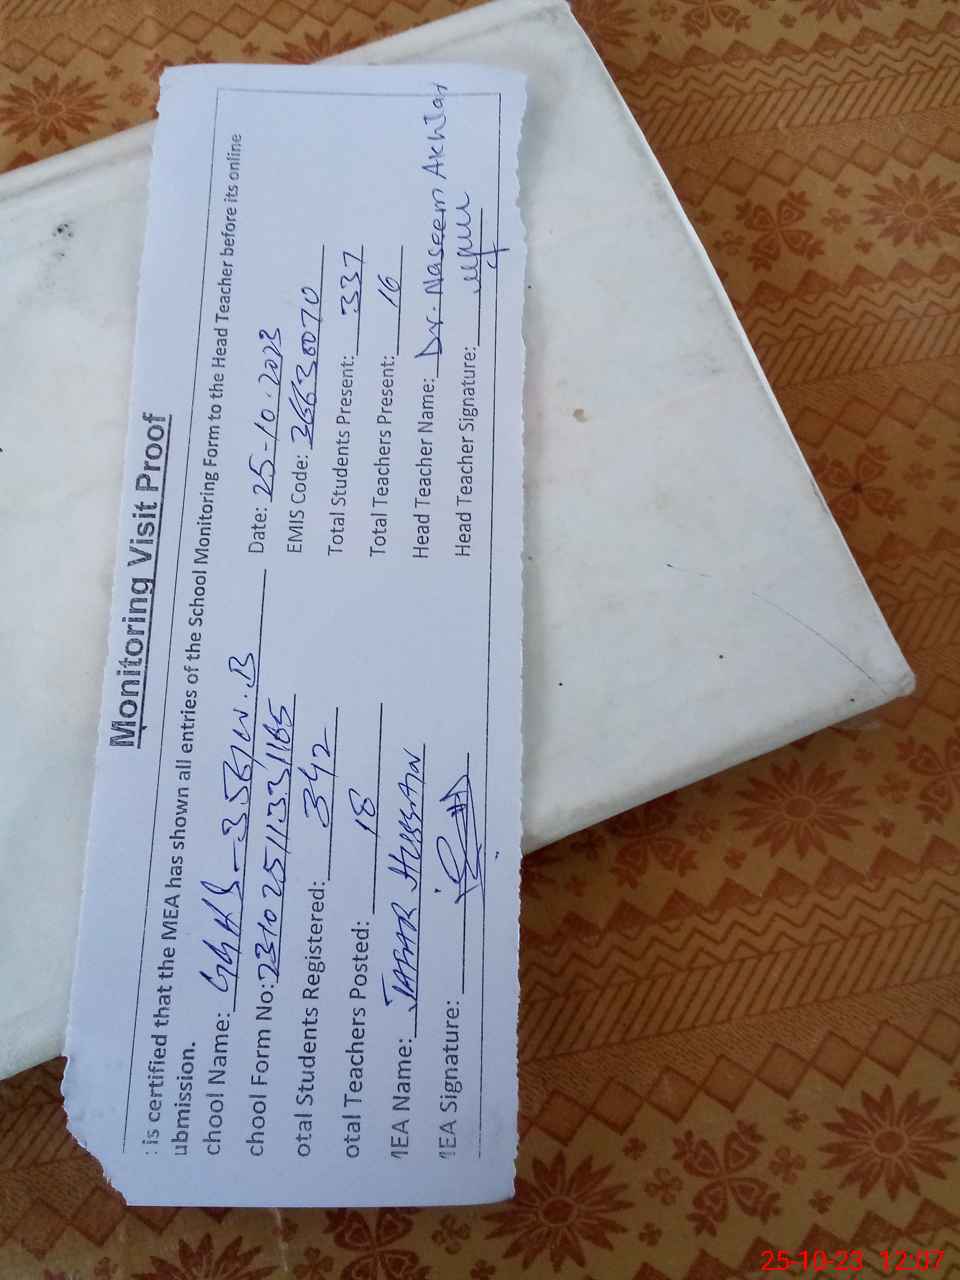 Monitoring Visit Proof
: is certified that the MEA has shown all entries of the School Monitoring Form to the Head Teacher before its online
ubmission.
chool Name: GGHS-356/W.B Date: 25-10.2023
chool Form No: 23102511331165 EMIS Code: 36630070
otal Students Registered: 342 Total Students Present: 337
otal Teachers Posted: 18 Total Teachers Present: 16
MEA Name: JAFAR HUSSAIN Head Teacher Name: Dr. Naseem Akhtar
MEA Signature: Head Teacher Signature:
25-10-23 12:07